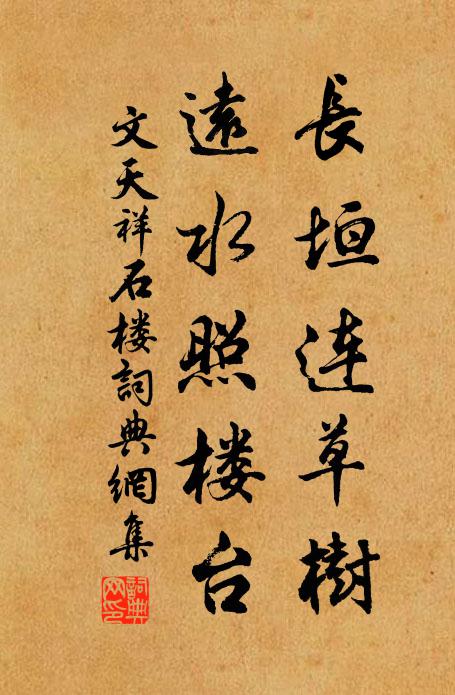 長垣连草樹
遠水照楼台
文天祥石楼詞典網集
詞典
网印